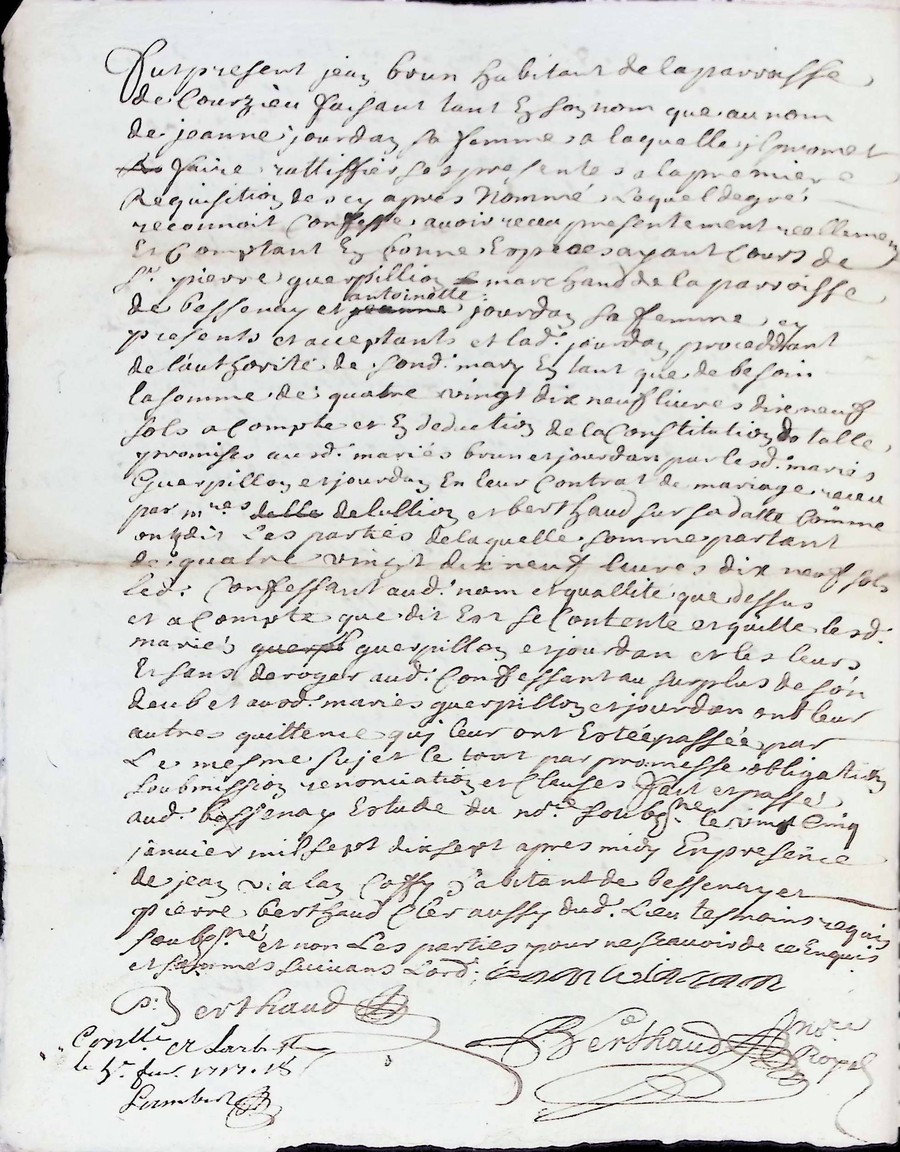 Fut present jean brun habitant de la parroisse
de Courzieu faisant tant En son nom que au nom
de jeanne jourdan sa femme a laquelle il promet
faire rattiffier ses presentes a la premiere
Requisition des cy apres Nommé Lequel de gré
reconnoit Confesse avoir receu presentement reellement
Et Comptant En bonne Especes ayant Cours de
Sr. pierre guerpillion marchand de la parroisse
de bessenay et jeanne antoinette jourdan sa femme, cy
presents et acceptants et lad. jourdan proceddant
de l'authorité de sond. mary En tant que de besoin
la somme de quatre vingt dix neuf livres dix neuf
sols a Compte et En deduction de la Constitution
promises aud. mariés brun et jourdan par lesd. mariés
Guerpillon et jourdan En leur Contrat de mariage receu
par mres delullion et berthaud sur sa datte Comme
ont dit Les parties de laquelle somme partant
de quatre vingt dix neuf livres dix neuf sols
led. Confessant aud. nom et quallité que dessus
et a Compte que dit Est se Contente et quitte lesd.
mariés guerpillon et jourdan et les leurs
Et sans deroger aud. Confessant au surplus de son
deub et auxd. mariés guerpillon et jourdan ont leur
autres quittence quj leur ont Esté passée par
Le mesme sujet le tout par promesse obligation
Soubmission renonciation et Clauses fait et passé
aud. bessenay Estude du nore. soubsne. le vingt Cinq
janvier mil sept dix sept apres midy En presence
de jean vialan habitant de bessenay et
pierre berthaud Cler aussy dud. Lieu tesmoins requis
soubsné. et non Les parties pour ne scavoir de ce Enquis
et sommés suivans L'ord.
p. Berthaud
Berthaud nore Royal
Conlle. a Larbresle
le fev. 1717.
Lambert